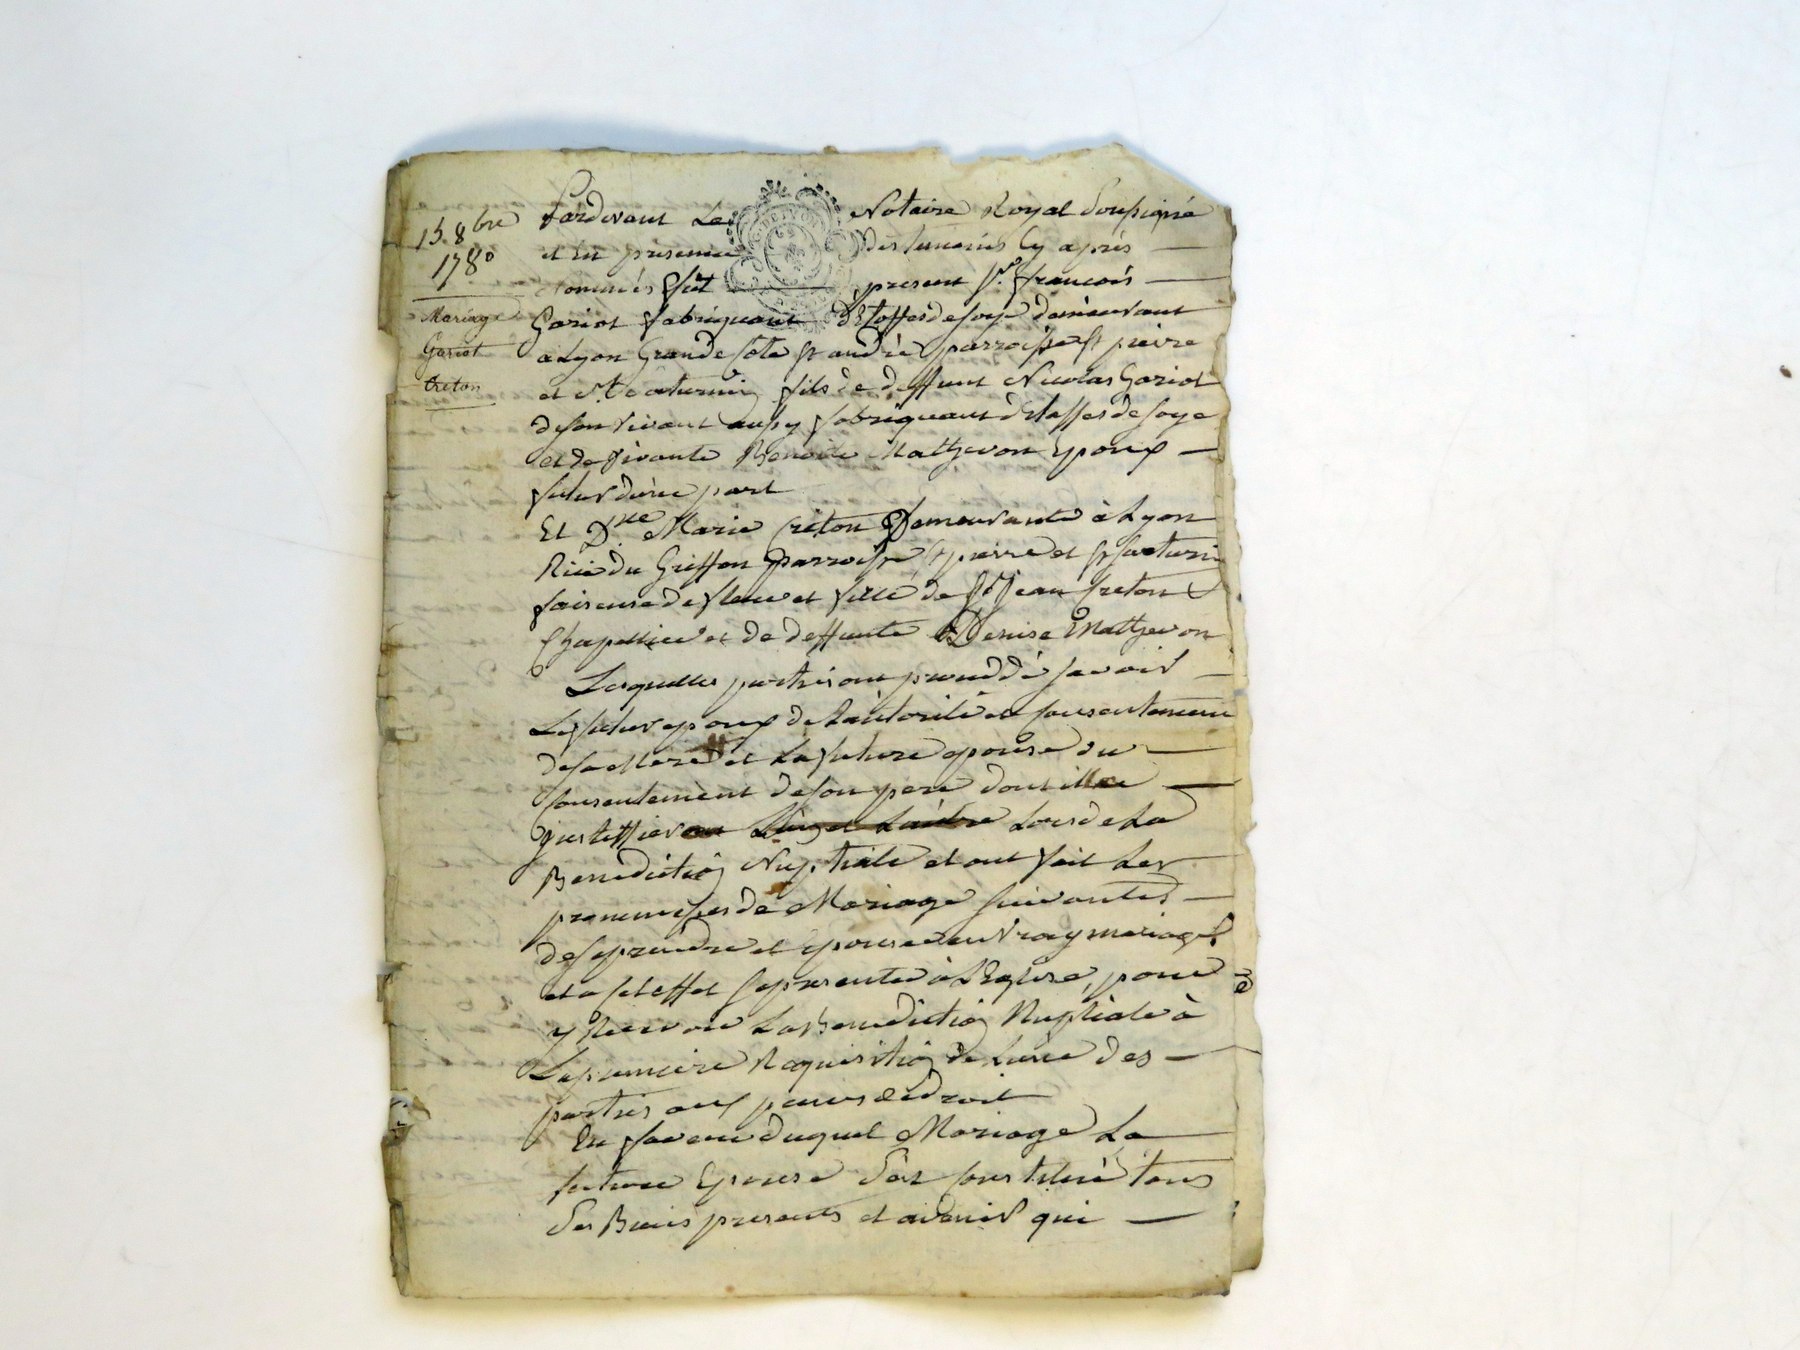 15 8bre
1780
Mariage
Gariot
Creton
Pardevant Le Notaire Royal Soussigné
et En presence des temoins Cy après
Nommés fut present Sr. françois
Gariot fabriquant D'Etoffes de soye demeurant
a Lyon Grande Cote St andré parroisse St pierre
et St Saturnin fils de deffunt Nicolas Gariot
de son vivant aussy fabriquant d'Etoffes de soye
et de vivante Benoite Mathevon Epoux
futur d'une part
Et Dlle Marie Creton Demeurante à Lyon
Rüe du Griffon parroisse St pierre et St saturnin
faiseuse de fleur et fille de Sr Jean Creton
Chapellier et de deffunte Denise Mathevon
Lesquelles parties ont proceddé savoir
Le futur epoux de L'autorité et consentement
de sa Mere et La future epouse du
Consentement de son pere dont
justiffier L'un et L'autre Lors de La
Benediction Nuptiale et ont fait Les
promesses de Mariage suivantes
de se prendre et epouser en vray mariage
et a cet effet se presenter à L'Eglise, pour
y Recevoir La Benediction Nuptiale à
La premiere Requisition de L'une des
parties aux peines de droit
En faveur duquel Mariage La
future Epouse s'est constituée tous
ses Biens presents et avenir qui